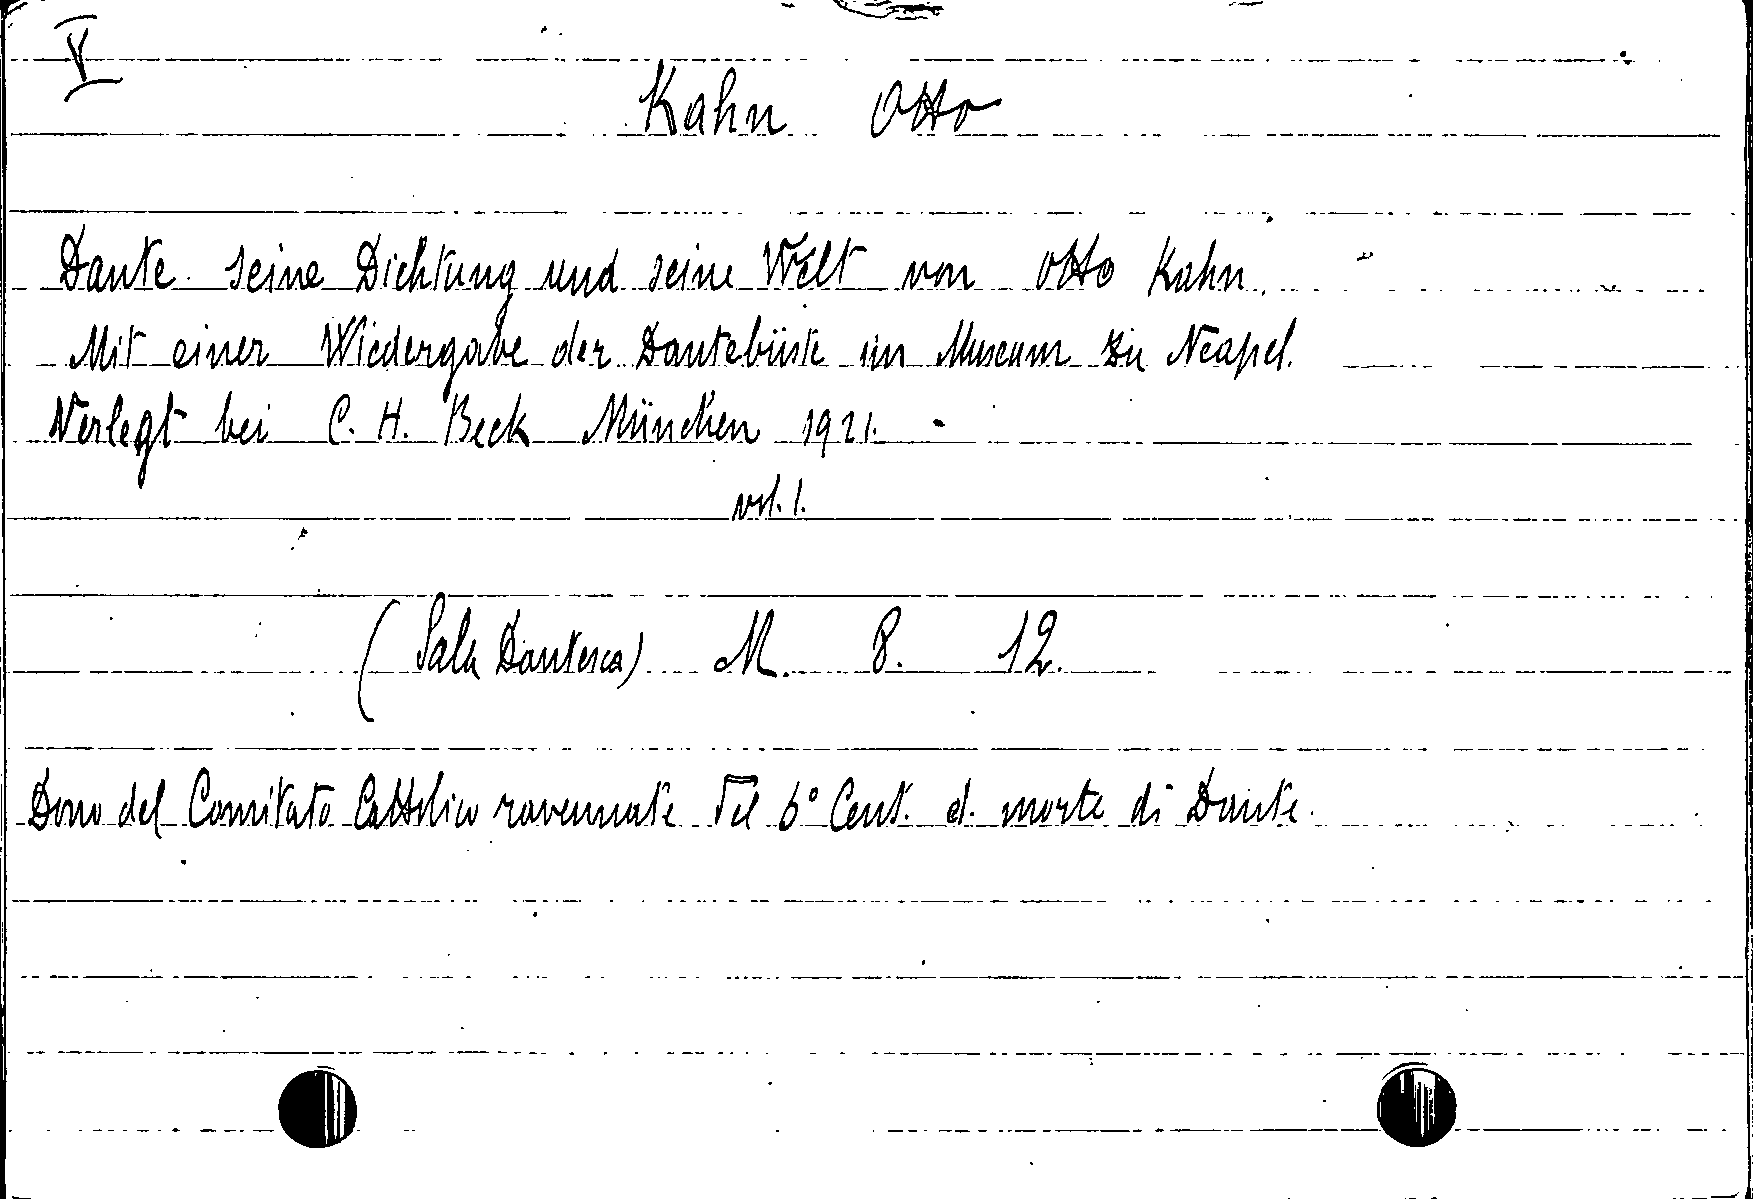 V
Kahn Otto
Dante. seine Dichtung und seine Welt von Otto Kahn.
Mit einer Wiedergabe der Dantebüste im Museum zu Neapel.
Verlegt bei C. H. Beck München 1921. -
vol. 1.
(Sala Dantesca) M. 8. 12.
Dono del Comitato Cattolico ravennate del 6° Cent. d. morte di Dante.